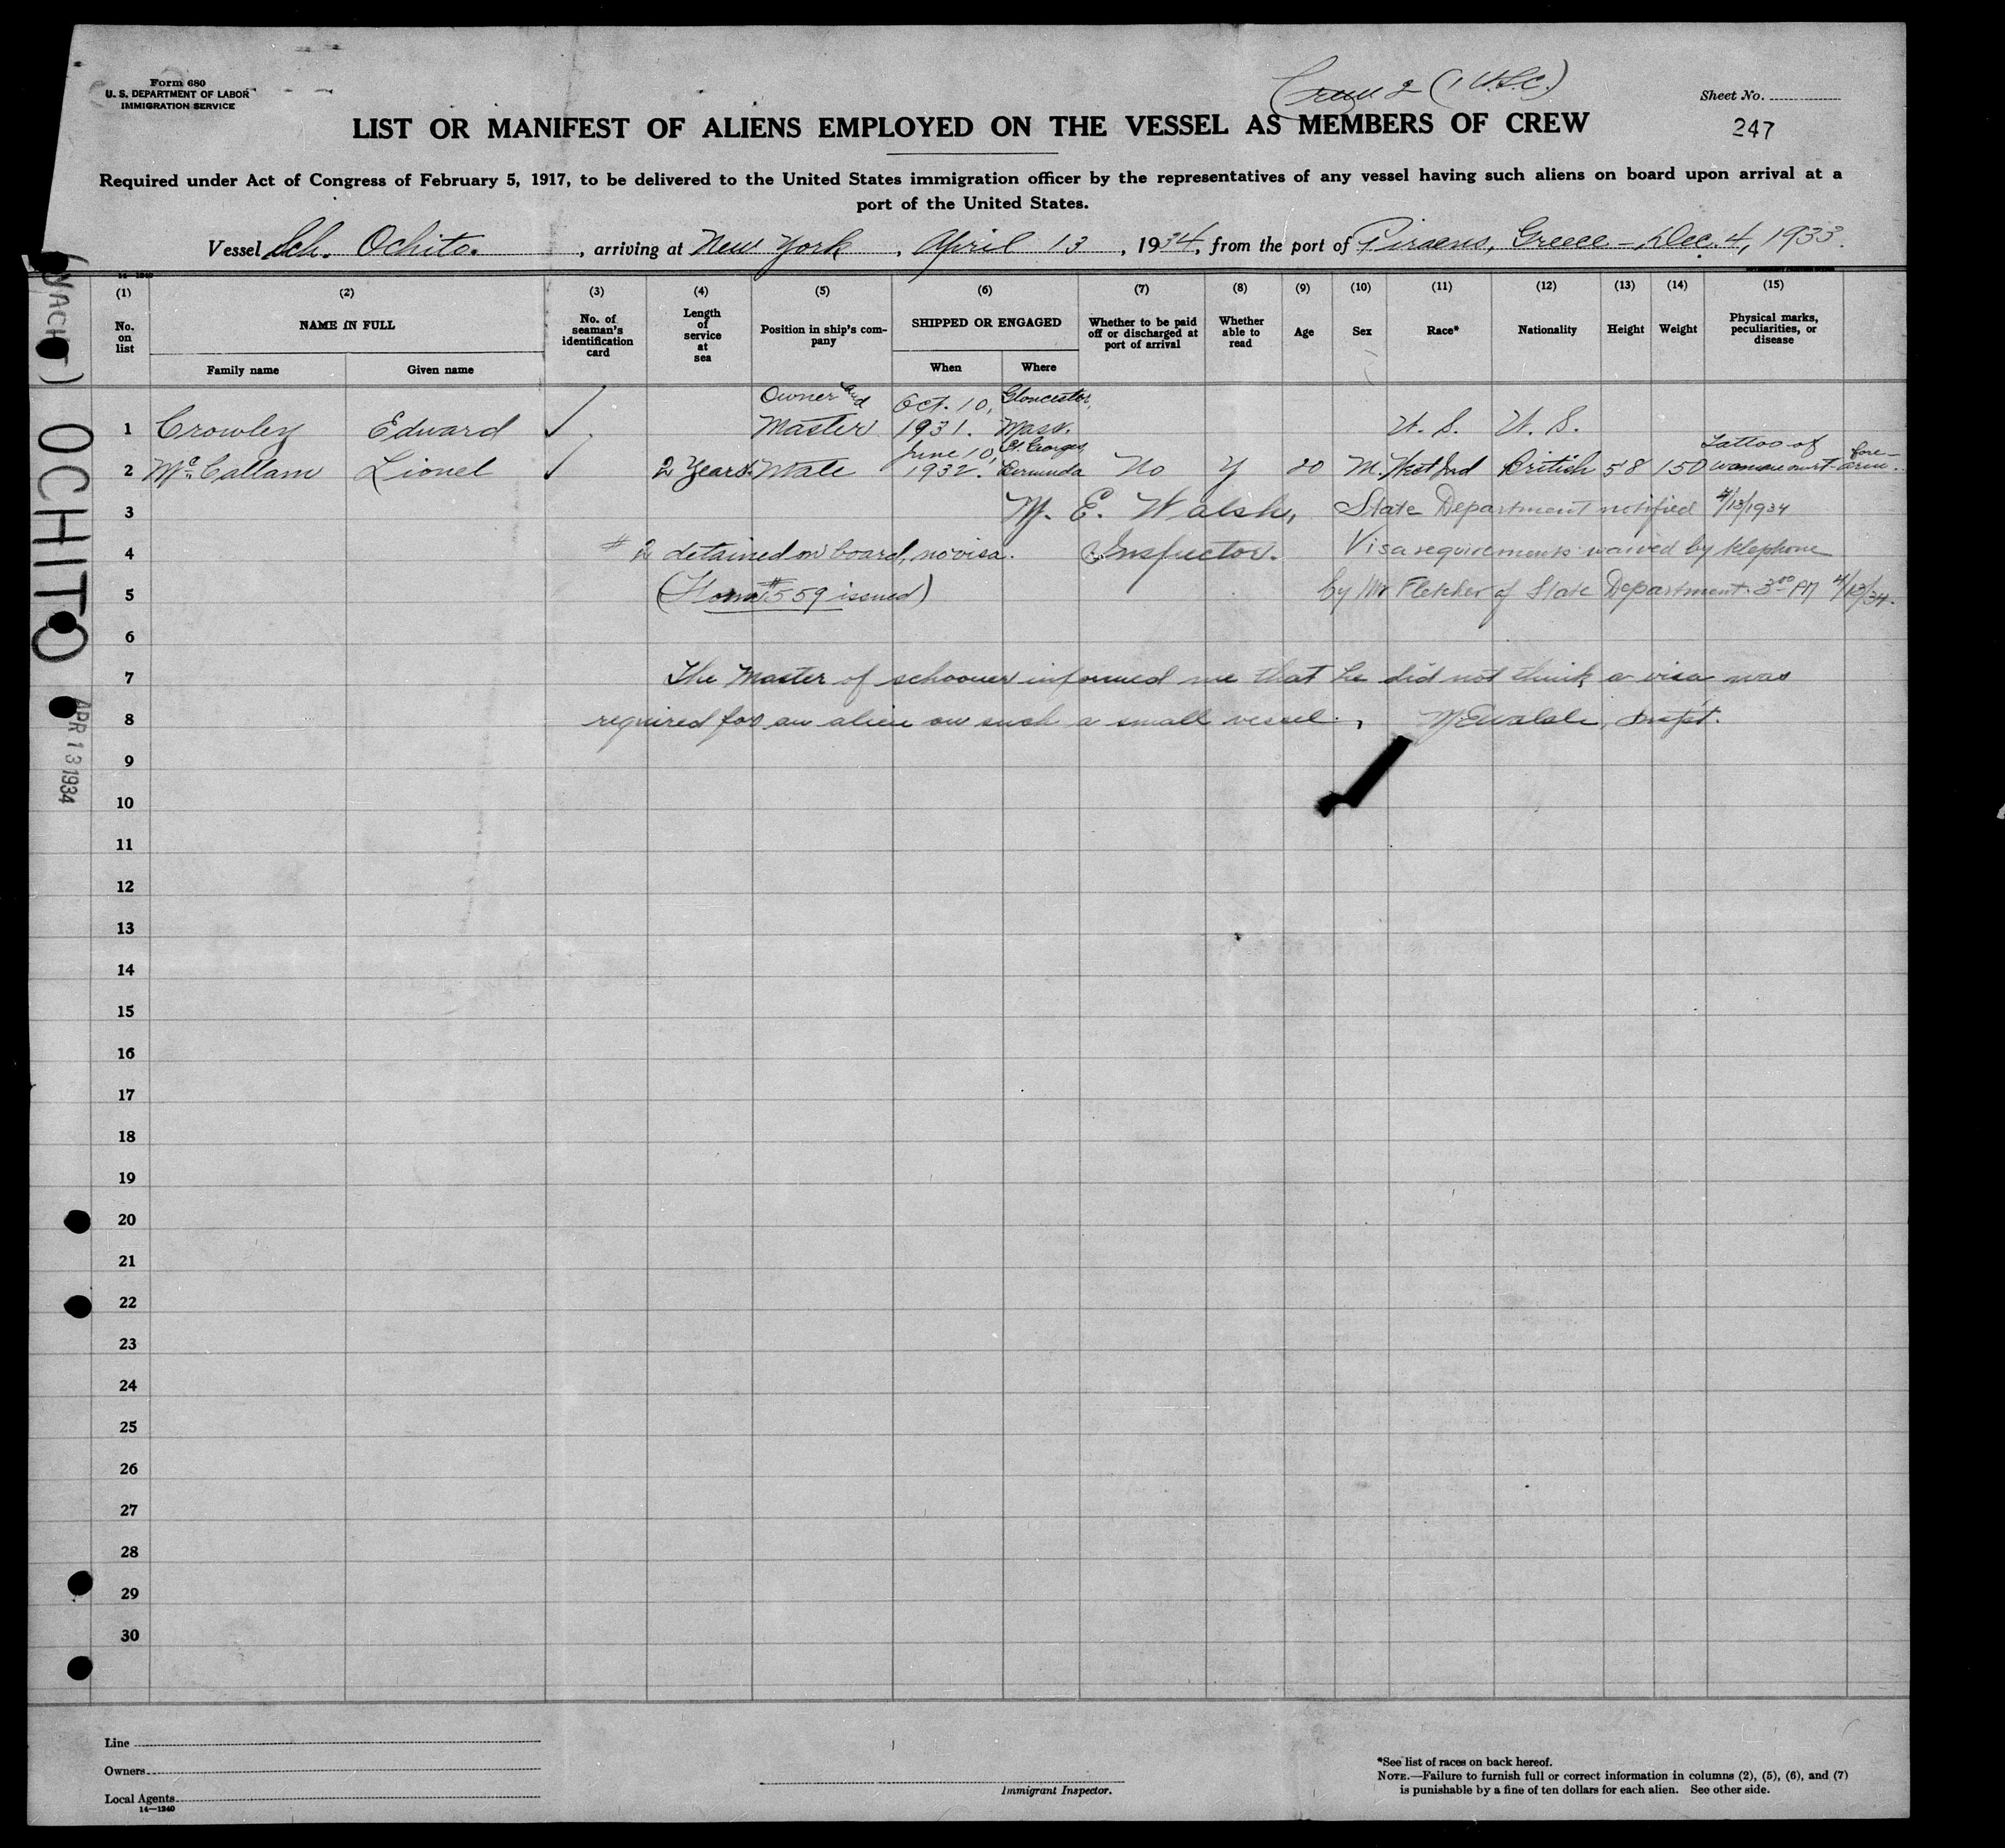 Form 680
U. S. DEPARTMENT OF LABOR
IMMIGRATION SERVICE
Crew 2 (1 U.S.C.)
Sheet No.
247
LIST OR MANIFEST OF ALIENS EMPLOYED ON THE VESSEL AS MEMBERS OF CREW
Required under Act of Congress of February 5, 1917, to be delivered to the United States immigration officer by the representatives of any vessel having such aliens on board upon arrival at a
port of the United States.
Vessel Sch. Ochito. , arriving at New York , April 13 , 1934, from the port of Piraeus, Greece - Dec. 4, 1933.
14—1240
(YACHT) OCHITO APR 13 1934
(1) (2) (3) (4) (5) (6) (7) (8) (9) (10) (11) (12) (13) (14) (15)
No. on list
NAME IN FULL
Family name Given name
No. of seaman's identification card
Length of service at sea
Position in ship's company
SHIPPED OR ENGAGED
When Where
Whether to be paid off or discharged at port of arrival
Whether able to read
Age
Sex
Race*
Nationality
Height
Weight
Physical marks, peculiarities, or disease
1 Crowley Edward ✓ Owner and Master Oct. 10, 1931. Gloucester, Mass. U. S. U. S.
2 McCallam Lionel ✓ 2 Years. Mate June 10, 1932. St. Georges, Bermuda No Y 20 M. West Ind British 5 8 150 Tattoo of woman on rt. fore-arm.
3 M. E. Walsh, State Department notified 4/13/1934
4 # 2 detained on board, no visa. Inspector. Visa requirements waived by telephone
5 (Form # 559 issued) by Mr Fletcher of State Department 3:00 PM 4/13/34.
6
7 The Master of schooner informed me that he did not think a visa was
8 required for an alien on such a small vessel. MEWalsh, Inspt.
9
10
11
12
13
14
15
16
17
18
19
20
21
22
23
24
25
26
27
28
29
30
Line
Owners
Local Agents
14—1240
Immigrant Inspector.
*See list of races on back hereof.
NOTE.—Failure to furnish full or correct information in columns (2), (5), (6), and (7)
is punishable by a fine of ten dollars for each alien. See other side.